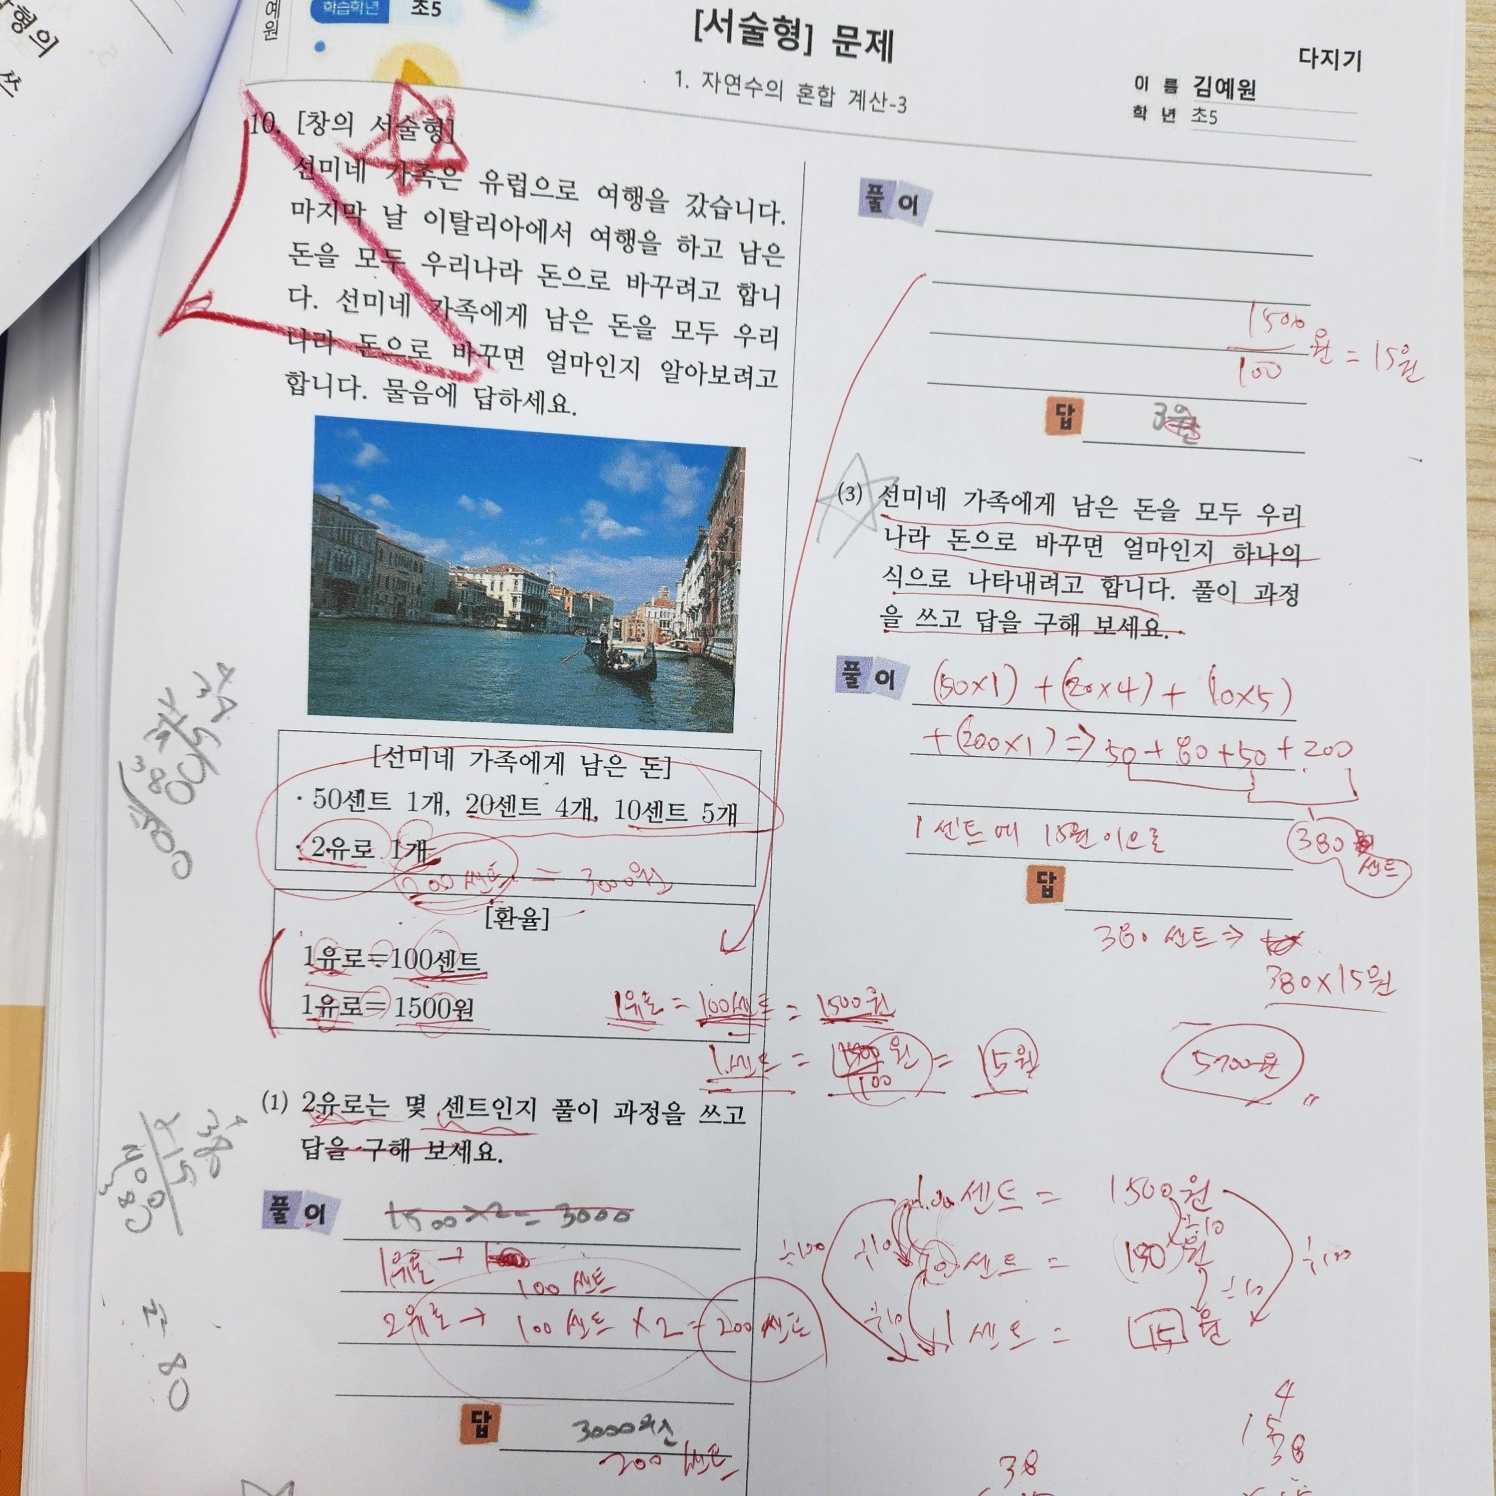 형의
쓰
예원
학습학년 초5
[서술형] 문제
다지기
1. 자연수의 혼합 계산-3
이 름 김예원
학 년 초5
10. [창의 서술형]
선미네 가족은 유럽으로 여행을 갔습니다.
마지막 날 이탈리아에서 여행을 하고 남은
돈을 모두 우리나라 돈으로 바꾸려고 합니
다. 선미네 가족에게 남은 돈을 모두 우리
나라 돈으로 바꾸면 얼마인지 알아보려고
합니다. 물음에 답하세요.
[선미네 가족에게 남은 돈]
· 50센트 1개, 20센트 4개, 10센트 5개
· 2유로 1개
200 센트 = 3000원
[환율]
1유로=100센트
1유로=1500원
1유로 = 100센트 = 1500원
1센트 = 1500원/100 = 15원
(1) 2유로는 몇 센트인지 풀이 과정을 쓰고
답을 구해 보세요.
풀이
1500×2=3000
1유로→
100 센트
2유로→ 100 센트 ×2= 200 센트
답
3000원
200 센트
풀이
1500/100 원 = 15원
답 3원
(3) 선미네 가족에게 남은 돈을 모두 우리
나라 돈으로 바꾸면 얼마인지 하나의
식으로 나타내려고 합니다. 풀이 과정
을 쓰고 답을 구해 보세요.
풀이 (50×1) + (20×4) + (10×5)
+(200×1) ⇒ 50 + 80 + 50 + 200
1센트에 15원이므로
380 센트
답
380 센트 ⇒
380×15원
5700원
100 센트 = 1500원
÷10
÷100 ÷10 10 센트 = 150원 ÷100
÷10 ÷10
1 센트 = 15 원
4
15
38
38